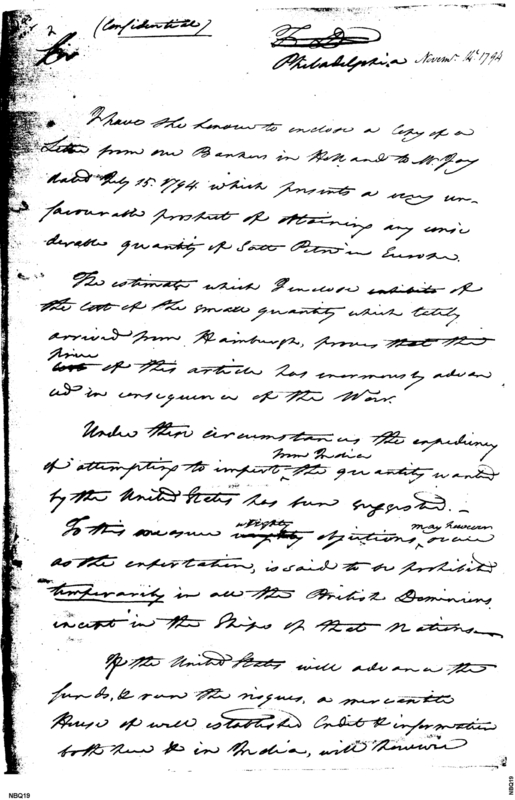 (Confidential)
Sir
Philadelphia Novemr. 14th 1794
I have the honour to inclose a Copy of a
Letter from our Bankers in Holland to Mr Jay
dated July 15. 1794 which presents a very un-
favourable prospect of obtaining any consi
derable quantity of Salt Petre in Europe.
The estimate which I inclose exhibits of
the Cost of the small quantity which lately
arrived from Hamburgh, proves that the
price
cost of this article has enormously advan
ced in consequence of the War.
Under these circumstances the expediency
from India
of attempting to import the quantity wanted
by the United States has been suggested. –
weighty may however
To this measure weighty objections, occur
as the exportation, is said to be prohibited
temporarily in all the British Dominions
except in the Ships of that Nation
If the United States will advance the
funds, & run the risques, a mercantile
House of well established Credit & information
both here & in India, will however
NBQ19
NBQ19